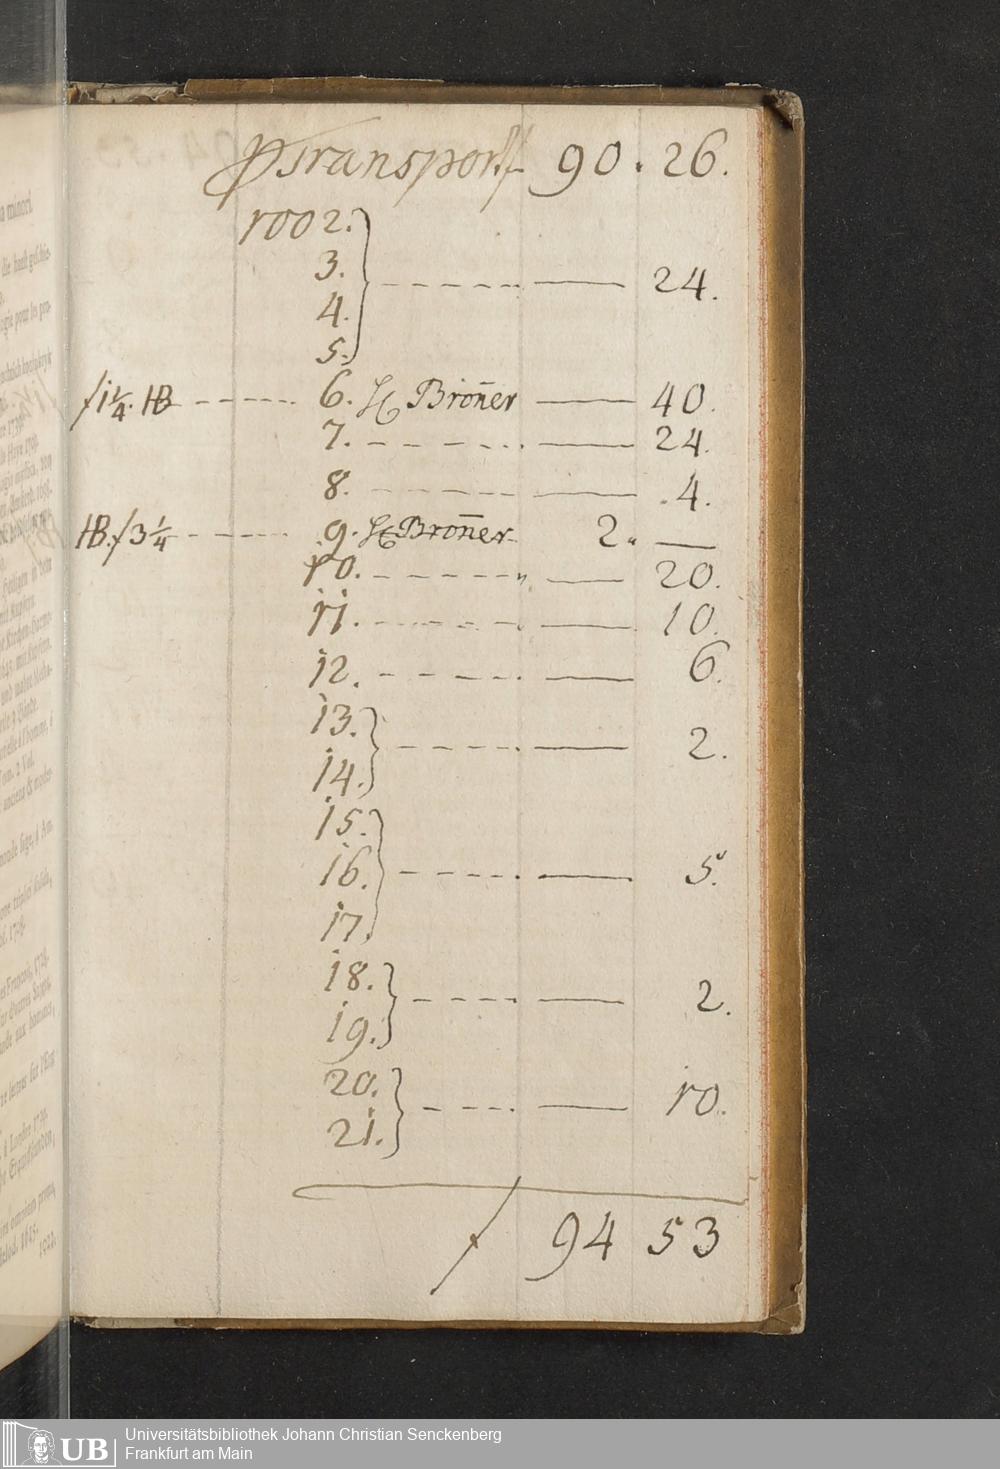 pTransport f 90. 26.
1002.
3.
4.
5. 24.
f 1 1/4. HB 6. H Broñer 40.
7. 24.
8. 4.
HB. f 3 1/4 9. H Broñer 2. —
10. 20.
11. 10.
12. 6.
13.
14. 2.
15.
16. 5.
17.
18.
19. 2.
20.
21. 10.
f 94 53
UB Universitätsbibliothek Johann Christian Senckenberg
Frankfurt am Main